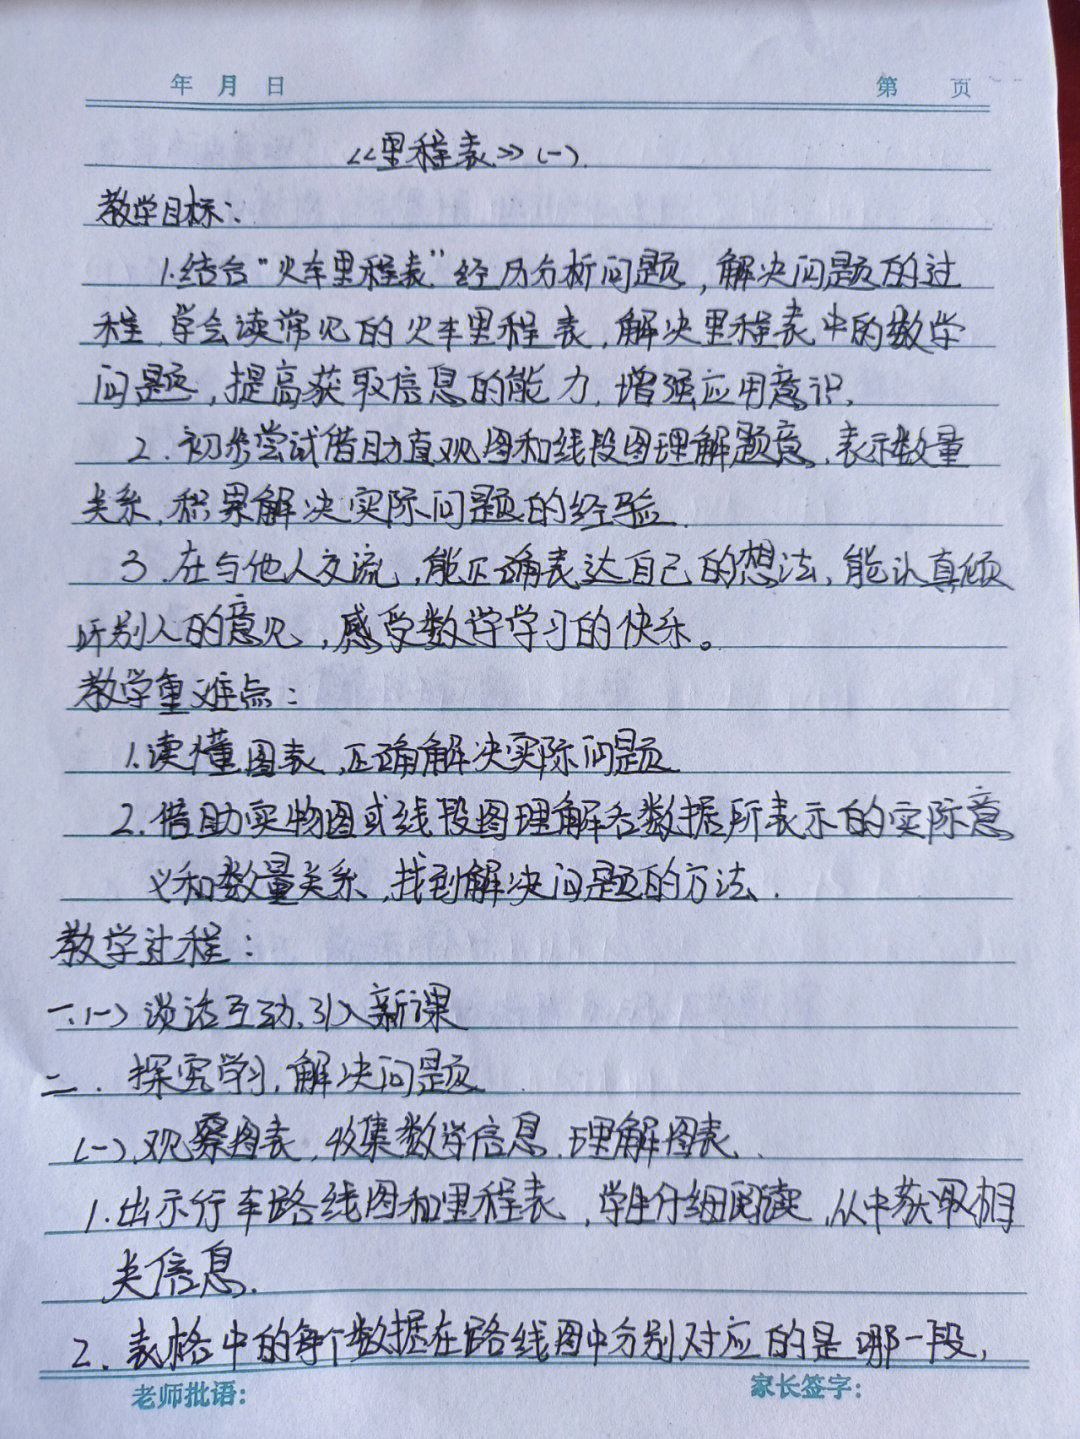 年 月 日 第 页
《里程表》(一).
教学目标:
1.结合“火车里程表”经历分析问题,解决问题的过
程,学会读常见的火车里程表,解决里程表中的数学
问题,提高获取信息的能力,增强应用意识.
2.初步尝试借助直观图和线段图理解题意,表示数量
关系,积累解决实际问题的经验.
3.在与他人交流,能正确表达自己的想法,能认真倾
听别人的意见,感受数学学习的快乐。
教学重难点:
1.读懂图表,正确解决实际问题
2.借助实物图或线段图理解各数据所表示的实际意
义和数量关系,找到解决问题的方法.
教学过程:
一.(一)谈话互动,引入新课
二.探究学习,解决问题.
(一).观察图表,收集数学信息,理解图表.
1.出示行车路线图和里程表,学生仔细阅读,从中获取相
关信息.
2.表格中的每个数据在路线图中分别对应的是哪一段,
老师批语: 家长签字: